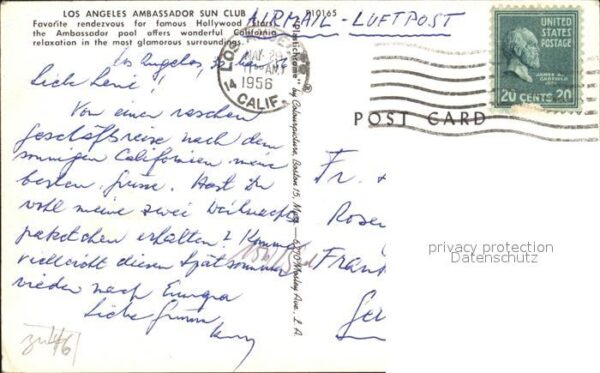 LOS ANGELES AMBASSADOR SUN CLUB P10165
Favorite rendezvous for famous Hollywood Stars,
the Ambassador pool offers wonderful California
relaxation in the most glamorous surroundings.
AIRMAIL - LUFTPOST
LOS ANGELES
MAY
11 AM
1956
14 CALIF.
UNITED
STATES
POSTAGE
JAMES A.
GARFIELD
20 CENTS 20
POST CARD
Los Angeles,
Liebe Leni!
Von einer raschen
Geschäftsreise nach dem
sonnigen Californien meine
besten Grüsse. Hast Du
wohl meine zwei Weihnachts
paketchen erhalten? Komme
vielleicht diesen Spätsommer
wieder nach Europa
Liebe Grüsse
"Plastichrome" by Colourpicture, Boston 15, Mass.
Fr.
Rosen
Frank
Ger
privacy protection
Datenschutz